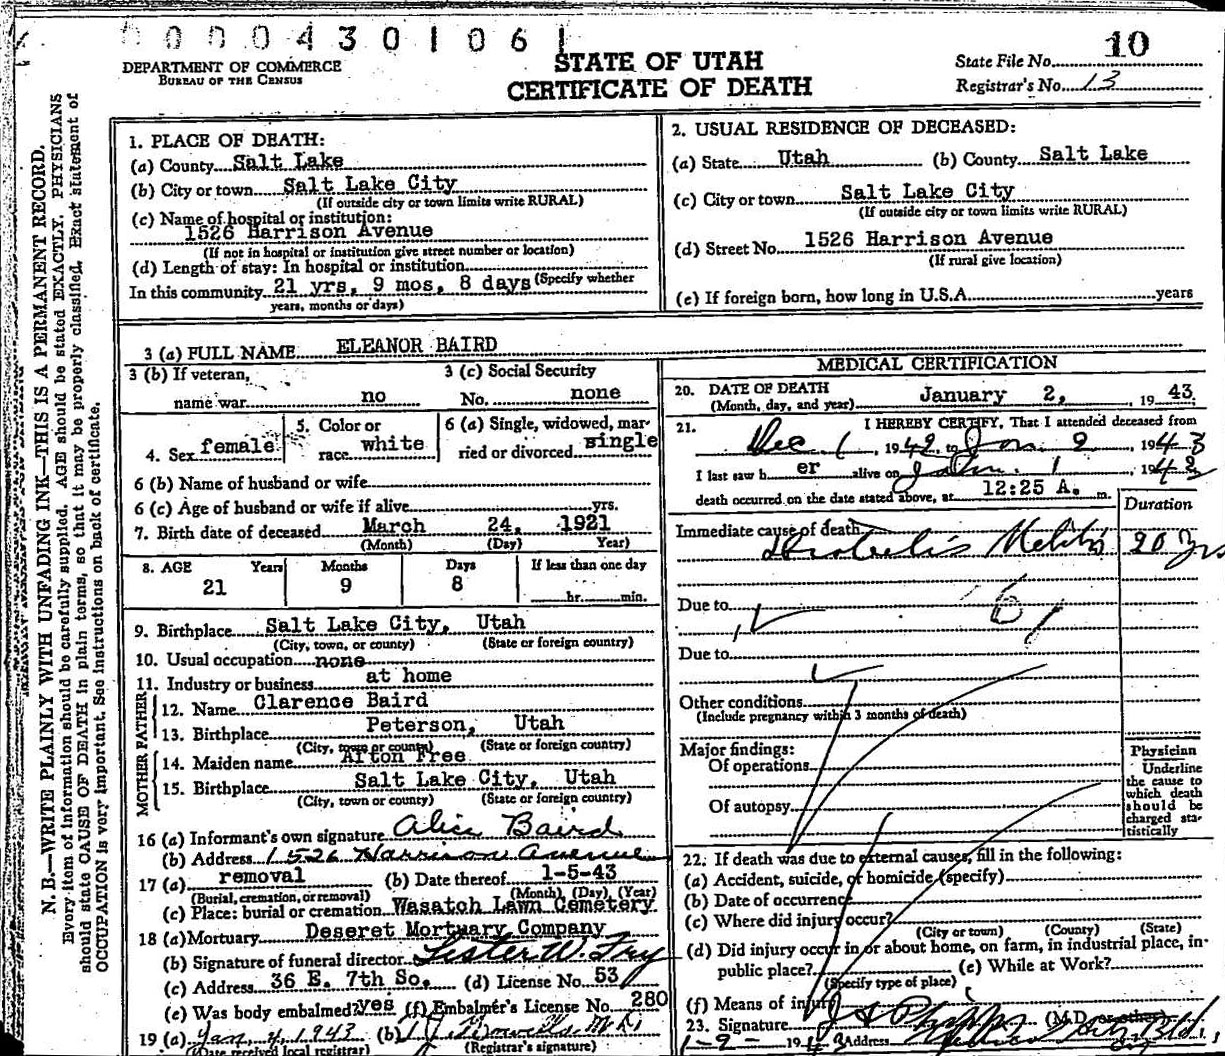 0004301061
STATE OF UTAH
CERTIFICATE OF DEATH
DEPARTMENT OF COMMERCE
BUREAU OF THE CENSUS
State File No. 10
Registrar's No. 13
N. B.—WRITE PLAINLY WITH UNFADING INK—THIS IS A PERMANENT RECORD.
Every item of information should be carefully supplied. AGE should be stated EXACTLY. PHYSICIANS
should state CAUSE OF DEATH in plain terms, so that it may be properly classified. Exact statement of
OCCUPATION is very important. See instructions on back of certificate.
1. PLACE OF DEATH:
(a) County Salt Lake
(b) City or town Salt Lake City
(If outside city or town limits write RURAL)
(c) Name of hospital or institution:
1526 Harrison Avenue
(If not in hospital or institution give street number or location)
(d) Length of stay: In hospital or institution
In this community 21 yrs, 9 mos, 8 days (Specify whether
years, months or days)
2. USUAL RESIDENCE OF DECEASED:
(a) State Utah (b) County Salt Lake
(c) City or town Salt Lake City
(If outside city or town limits write RURAL)
(d) Street No. 1526 Harrison Avenue
(If rural give location)
(e) If foreign born, how long in U.S.A. years
3 (a) FULL NAME ELEANOR BAIRD
3 (b) If veteran, 3 (c) Social Security
name war no No. none
4. Sex female 5. Color or race white 6 (a) Single, widowed, married or divorced single
6 (b) Name of husband or wife
6 (c) Age of husband or wife if alive yrs.
7. Birth date of deceased March 24, 1921
(Month) (Day) Year)
8. AGE Years Months Days If less than one day
21 9 8 hr. min.
9. Birthplace Salt Lake City, Utah
(City, town, or county) (State or foreign country)
10. Usual occupation none
11. Industry or business at home
FATHER
12. Name Clarence Baird
13. Birthplace Peterson, Utah
(City, town or county) (State or foreign country)
MOTHER
14. Maiden name Afton Free
15. Birthplace Salt Lake City, Utah
(City, town or county) (State or foreign country)
16 (a) Informant's own signature Alice Baird
(b) Address 1526 Harrison Avenue
17 (a) removal (b) Date thereof 1-5-43
(Burial, cremation, or removal) (Month) (Day) (Year)
(c) Place: burial or cremation Wasatch Lawn Cemetery
18 (a) Mortuary Deseret Mortuary Company
(b) Signature of funeral director Lester W. Fry
(c) Address 36 E. 7th So. (d) License No. 53
(e) Was body embalmed? yes (f) Embalmer's License No. 280
19 (a) Jan, 4, 1943 (b)
(Date received local registrar) (Registrar's signature)
MEDICAL CERTIFICATION
20. DATE OF DEATH January 2, 1943
(Month, day, and year)
21. I HEREBY CERTIFY, That I attended deceased from
Dec 1, 1942, to Jan 2, 1943
I last saw her alive on Jan. 1, 1943
death occurred on the date stated above, at 12:25 A. m.
Duration
Immediate cause of death Diabetis Melitis 20 yrs
Due to
Due to
Other conditions
(Include pregnancy within 3 months of death)
Major findings:
Of operations
Of autopsy
Physician
Underline
the cause to
which death
should be
charged sta-
tistically
22. If death was due to external causes, fill in the following:
(a) Accident, suicide, or homicide (specify)
(b) Date of occurrence
(c) Where did injury occur?
(City or town) (County) (State)
(d) Did injury occur in or about home, on farm, in industrial place, in-
public place? (e) While at Work?
(Specify type of place)
(f) Means of injury
23. Signature (M.D. or other)
1-2-1943 Address Bldg.